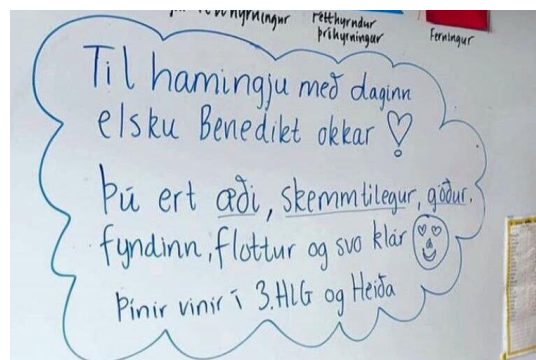 rétthyrndur
þríhyrningur
Ferningur
Til hamingju með daginn
elsku Benedikt okkar
Þú ert æði, skemmtilegur, góður,
fyndinn, flottur og svo klár
Þínir vinir í 3.HLG og Heiða